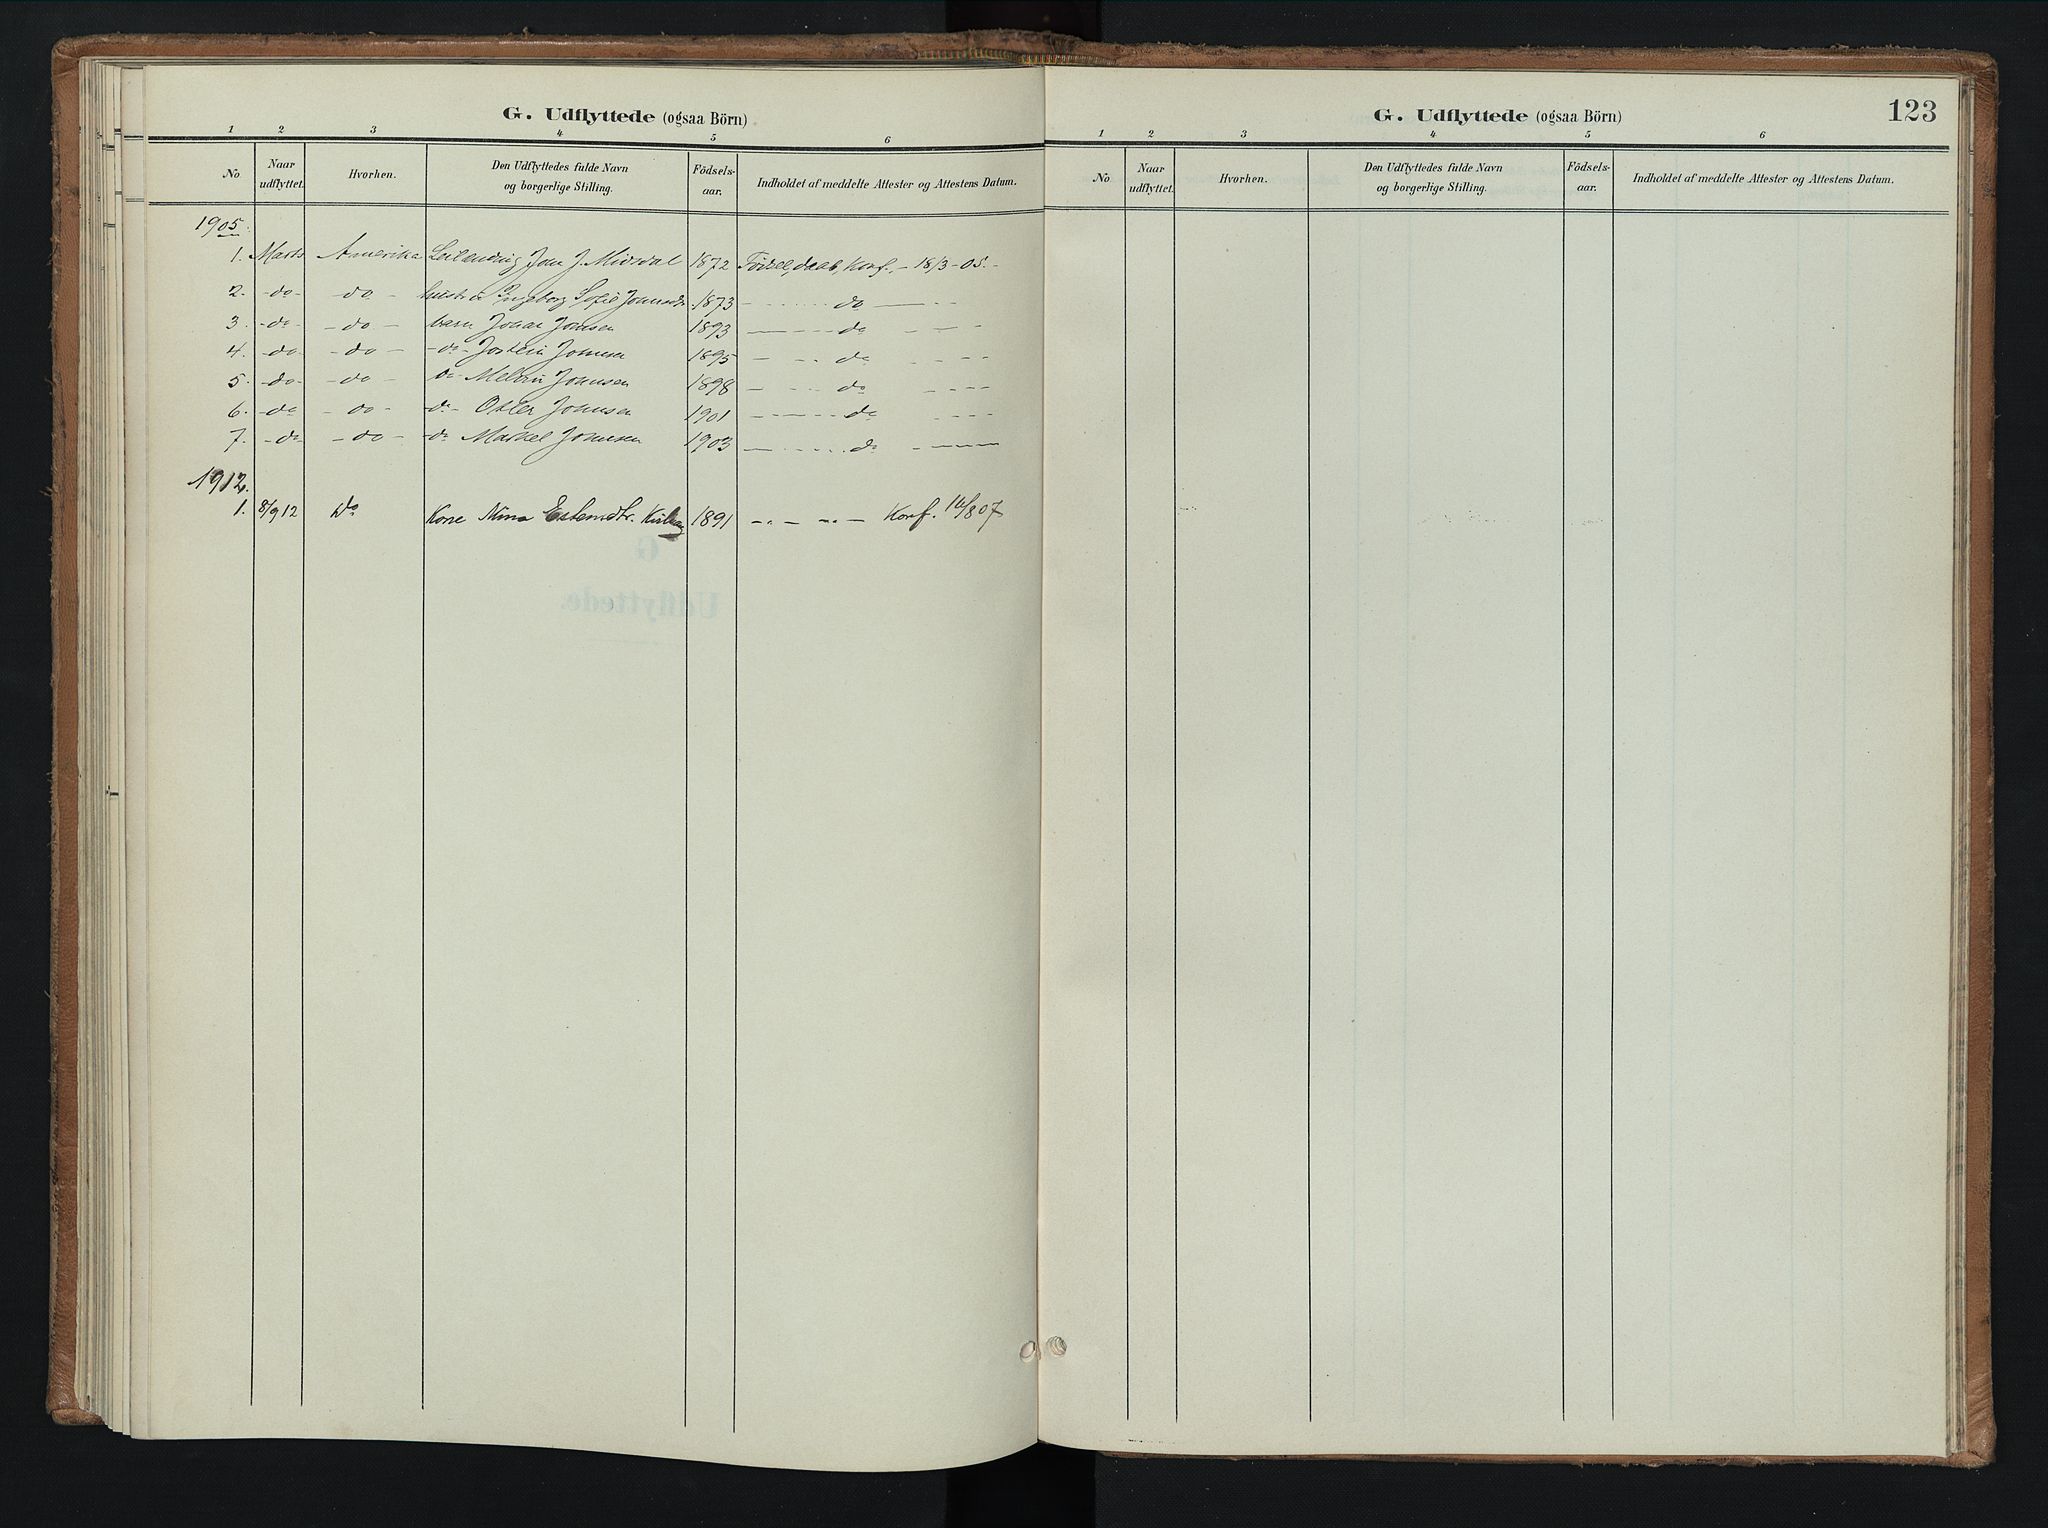 G. Udflyttede (ogsaa Börn)
1 2 3 4 5 6
No Naar udflyttet. Hvorhen. Den Udflyttedes fulde Navn og borgerlige Stilling. Födsels-aar. Indholdet af meddelte Attester og Attestens Datum.
1905.
1. Marts Amerika Leilending Jon J. Midsdal 1872 Födsel, daab, Konf. - 18/3-05.-
2. -do- -do- hustru Ingeborg Sofie Jonsdtr. 1873 do
3. -do- -do- barn Johan Jonsen 1893 do
4. -do- -do- -do- Jostein Jonsen 1895 do
5. -do- -do- do- Jonsen 1898 do
6. -do- -do- -do- Jonsen 1901 do
7. -do- -do- -do- Jonsen 1903 do
1912.
1. 8/9 12 Do Kone Nina Estensdtr. 1891 Konf. 14/8 07
G. Udflyttede (ogsaa Börn)
123
1 2 3 4 5 6
No Naar udflyttet. Hvorhen. Den Udflyttedes fulde Navn og borgerlige Stilling. Födsels-aar. Indholdet af meddelte Attester og Attestens Datum.